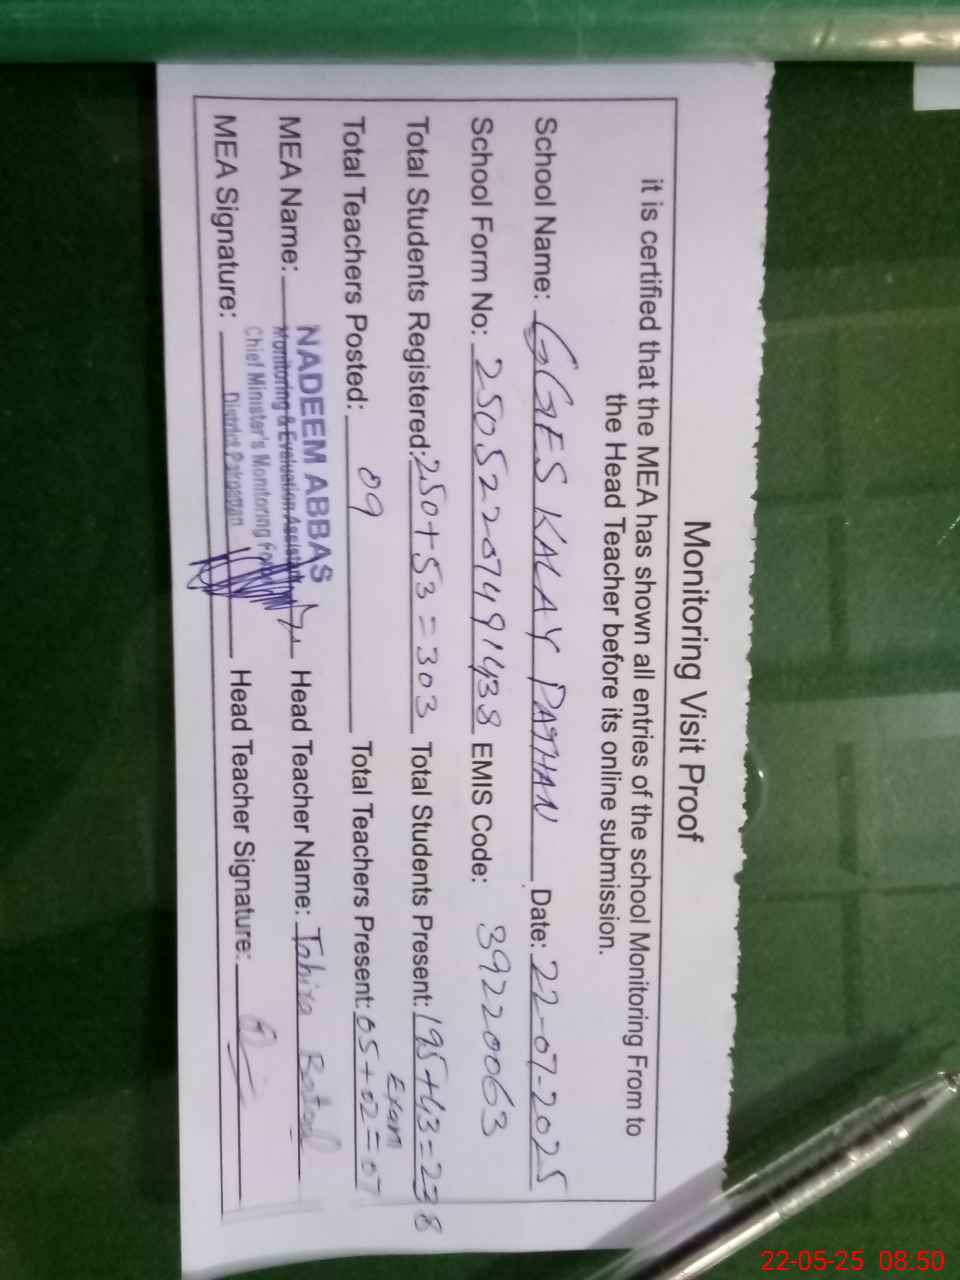 Monitoring Visit Proof
it is certified that the MEA has shown all entries of the school Monitoring From to
the Head Teacher before its online submission.
School Name: GGES KALAY PATHAN Date: 22-07-2025
School Form No: 2505220749143 8 EMIS Code: 39220063
Total Students Registered: 250+53=303 Total Students Present: 195+43=238
Total Teachers Posted: 09 Total Teachers Present: 05+02=07
Exam
MEA Name: NADEEM ABBAS Head Teacher Name: Tahira Batool
Monitoring & Evaluation Assistant
Chief Minister's Monitoring
District Pakpattan
MEA Signature: Head Teacher Signature:
22-05-25 08:50